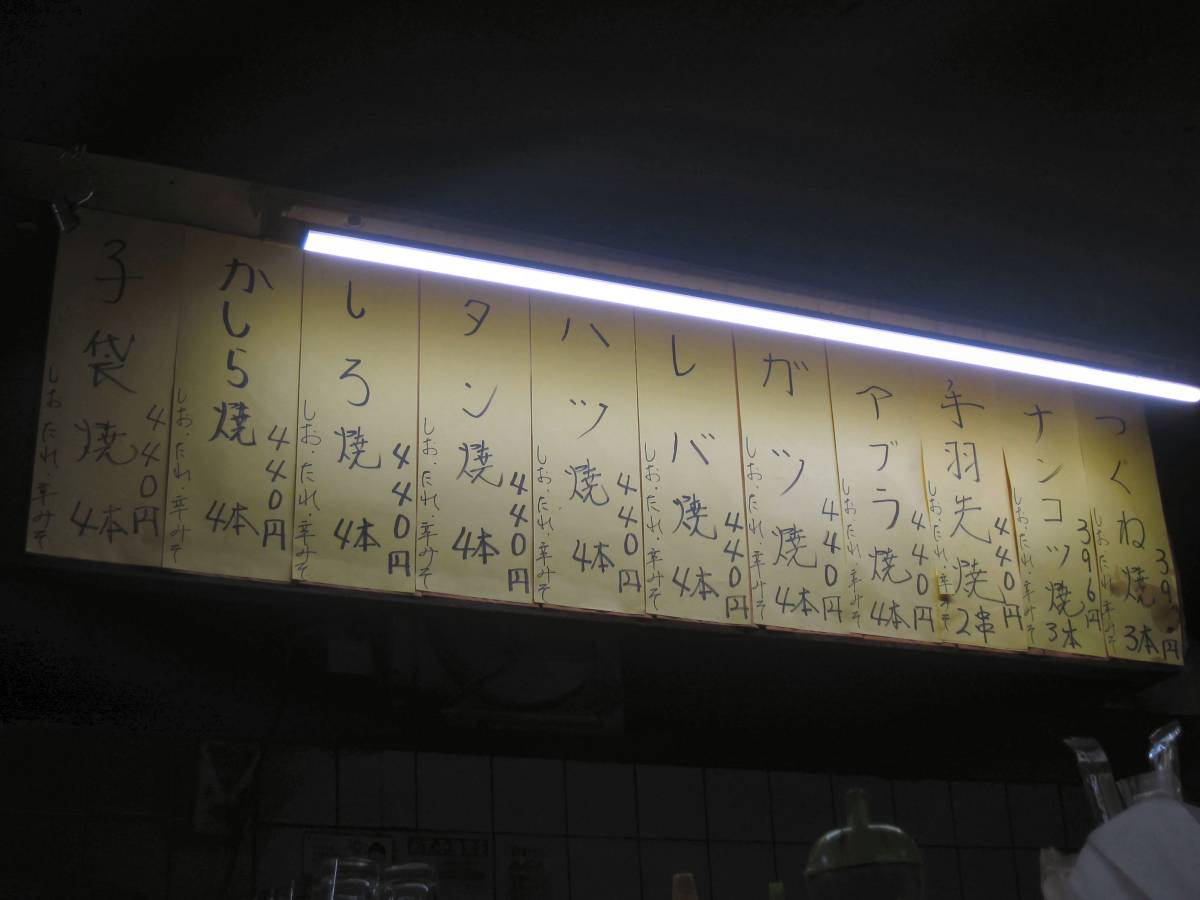 つくね焼
3本
しお・たれ・辛みそ
ナンコツ焼
396円
3本
しお・たれ・辛みそ
手羽先焼
440円
2串
しお・たれ・辛みそ
アブラ焼
440円
4本
しお・たれ・辛みそ
ガツ焼
440円
4本
しお・たれ・辛みそ
レバ焼
440円
4本
しお・たれ・辛みそ
ハツ焼
440円
4本
しお・たれ・辛みそ
タン焼
440円
4本
しお・たれ・辛みそ
しろ焼
440円
4本
しお・たれ・辛みそ
かしら焼
440円
4本
しお・たれ・辛みそ
子袋焼
440円
4本
しお・たれ・辛みそ